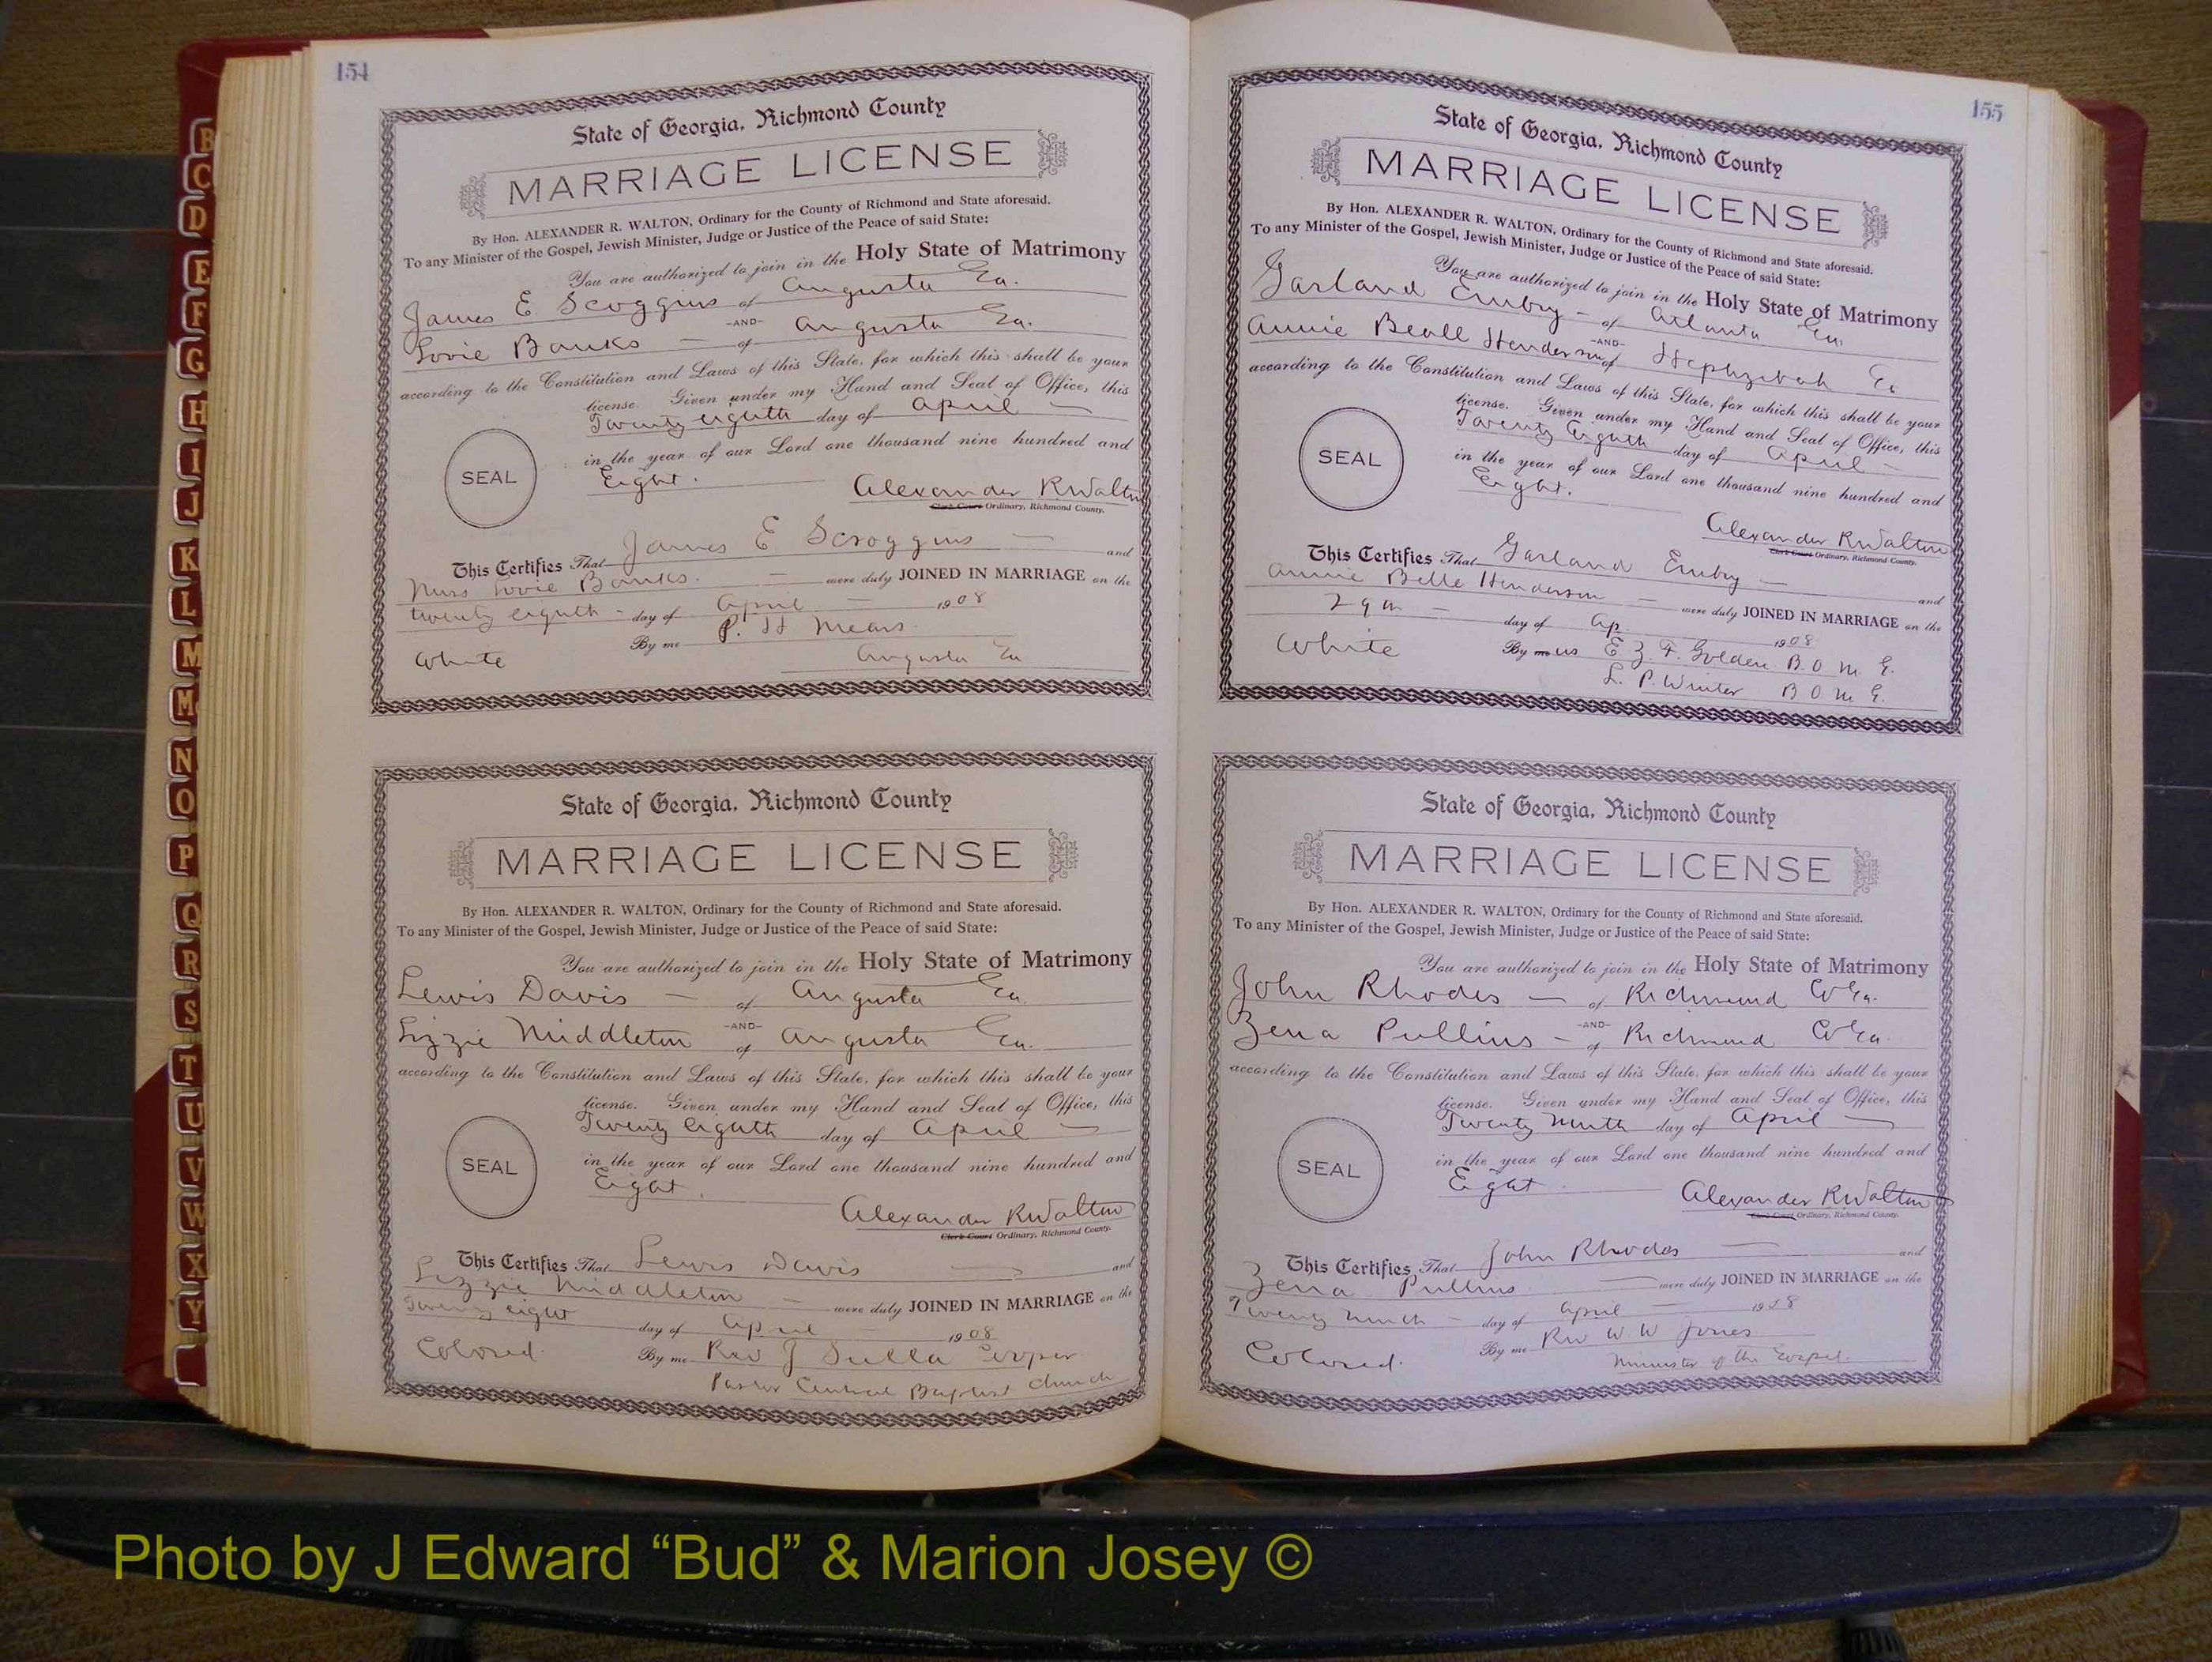 154
State of Georgia, Richmond County
MARRIAGE LICENSE
By Hon. ALEXANDER R. WALTON, Ordinary for the County of Richmond and State aforesaid.
To any Minister of the Gospel, Jewish Minister, Judge or Justice of the Peace of said State:
You are authorized to join in the Holy State of Matrimony
James E Scoggins of Augusta Ga.
-AND-
Lovie Banks of Augusta Ga.
according to the Constitution and Laws of this State, for which this shall be your
license. Given under my Hand and Seal of Office, this
Twenty eighth day of April
in the year of our Lord one thousand nine hundred and
SEAL
Eight.
Alexander R Walton
Clerk Court Ordinary, Richmond County.
This Certifies That James E Scroggins and
Miss Lovie Banks were duly JOINED IN MARRIAGE on the
twenty eighth day of April 1908
By me P. H Mears
White Augusta Ga
State of Georgia, Richmond County
MARRIAGE LICENSE
By Hon. ALEXANDER R. WALTON, Ordinary for the County of Richmond and State aforesaid.
To any Minister of the Gospel, Jewish Minister, Judge or Justice of the Peace of said State:
You are authorized to join in the Holy State of Matrimony
Lewis Davis of Augusta Ga.
-AND-
Lizzie Middleton of Augusta Ga.
according to the Constitution and Laws of this State, for which this shall be your
license. Given under my Hand and Seal of Office, this
Twenty eighth day of April
in the year of our Lord one thousand nine hundred and
SEAL
Eight.
Alexander R Walton
Clerk Court Ordinary, Richmond County.
This Certifies That Lewis Davis and
Lizzie Middleton were duly JOINED IN MARRIAGE on the
Twenty eight day of April 1908
Colored. By me Rev J Cooper
Pastor Central Baptist Church
155
State of Georgia, Richmond County
MARRIAGE LICENSE
By Hon. ALEXANDER R. WALTON, Ordinary for the County of Richmond and State aforesaid.
To any Minister of the Gospel, Jewish Minister, Judge or Justice of the Peace of said State:
You are authorized to join in the Holy State of Matrimony
Garland Embry of Atlanta Ga.
-AND-
Annie Beall Henderson of Hephzibah Ga
according to the Constitution and Laws of this State, for which this shall be your
license. Given under my Hand and Seal of Office, this
Twenty Eighth day of April
in the year of our Lord one thousand nine hundred and
SEAL
Eight.
Alexander R Walton
Clerk Court Ordinary, Richmond County.
This Certifies That Garland Embry and
Annie Belle Henderson were duly JOINED IN MARRIAGE on the
29th day of Ap. 1908
White By me us E Z. F. Golden B. O M. E.
L. P. Winter B O M E.
State of Georgia, Richmond County
MARRIAGE LICENSE
By Hon. ALEXANDER R. WALTON, Ordinary for the County of Richmond and State aforesaid.
To any Minister of the Gospel, Jewish Minister, Judge or Justice of the Peace of said State:
You are authorized to join in the Holy State of Matrimony
John Rhodes of Richmond Co Ga.
-AND-
Zena Pullins of Richmond Co Ga.
according to the Constitution and Laws of this State, for which this shall be your
license. Given under my Hand and Seal of Office, this
Twenty Ninth day of April
in the year of our Lord one thousand nine hundred and
SEAL
Eight
Alexander R Walton
Clerk Court Ordinary, Richmond County.
This Certifies That John Rhodes and
Zena Pullins were duly JOINED IN MARRIAGE on the
Twenty ninth day of April 1908
By me Rev W. W Jones
Colored. Minister of the Gospel.
B
C
D
E
F
G
H
I
J
K
L
M
Mc
N
O
P
Q
R
S
T
U
V
W
X
Y
Photo by J Edward “Bud” & Marion Josey ©